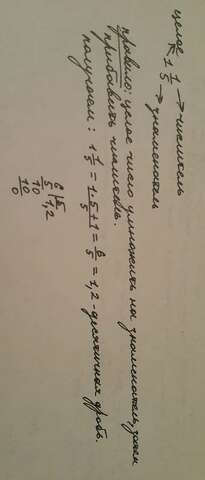 целое
1 1/5 → числитель
→ знаменатель
правило: целое число умножить на знаменатель, затем
прибавить числитель.
получаем: 1 1/5 = 1·5+1/5 = 6/5 = 1,2 - десятичная дробь.
6 | 5
5 | 1,2
10
10
0